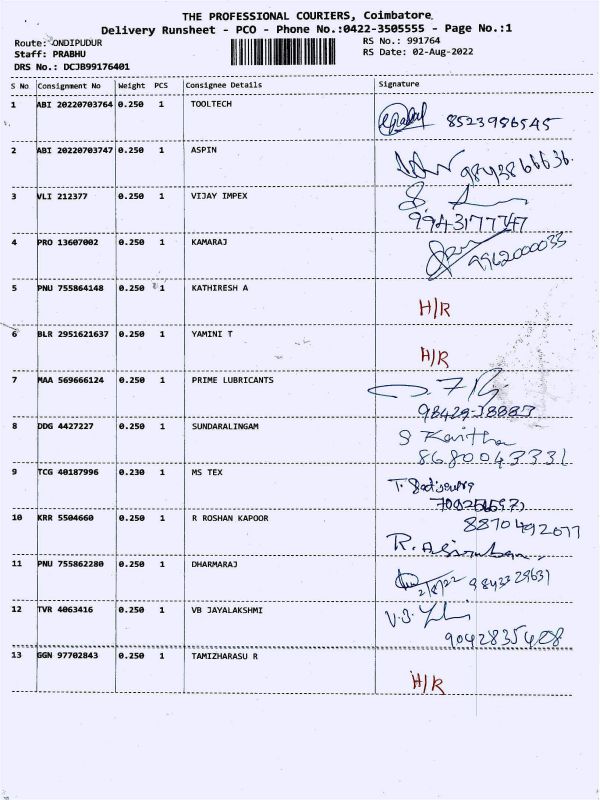 THE PROFESSIONAL COURIERS, Coimbatore.
Delivery Runsheet - PCO - Phone No.:0422-3505555 - Page No.:1
Route: ONDIPUDUR RS No.: 991764
Staff: PRABHU RS Date: 02-Aug-2022
DRS No.: DCJB99176401
S No Consignment No Weight PCS Consignee Details Signature
1 ABI 20220703764 0.250 1 TOOLTECH 8523986545
2 ABI 20220703747 0.250 1 ASPIN
3 VLI 212377 0.250 1 VIJAY IMPEX
9943177747
4 PRO 13607002 0.250 1 KAMARAJ 9962000033
5 PNU 755864148 0.250 1 KATHIRESH A
H/R
6 BLR 2951621637 0.250 1 YAMINI T
H/R
7 MAA 569666124 0.250 1 PRIME LUBRICANTS
98429-38883
8 DDG 4427227 0.250 1 SUNDARALINGAM
S Kavitha
8680043331
9 TCG 40187996 0.230 1 MS TEX
10 KRR 5504660 0.250 1 R ROSHAN KAPOOR 8870492077
11 PNU 755862280 0.250 1 DHARMARAJ
2/8/22 9843329631
12 TVR 4063416 0.250 1 VB JAYALAKSHMI
9042835408
13 GGN 97702843 0.250 1 TAMIZHARASU R
H/R